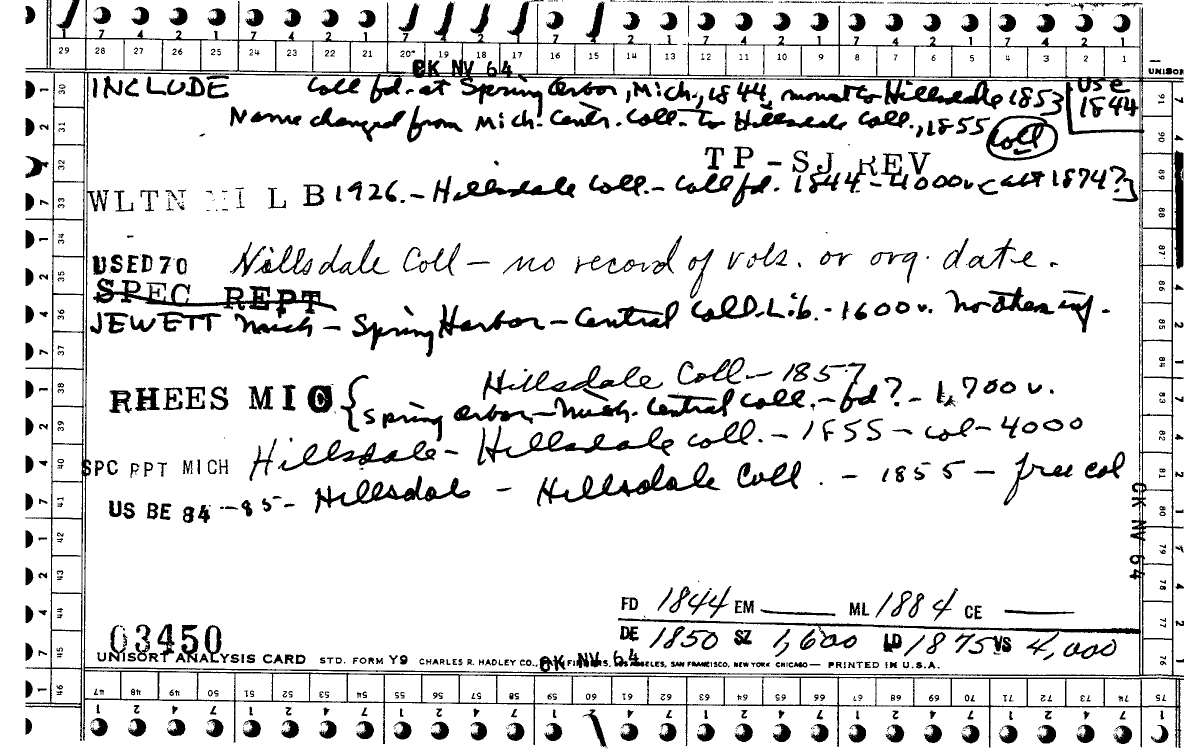 7 4 2 1 7 4 2 1 7 4 2 1 7 4 2 1 7 4 2 1 7 4 2 1 7 4 2 1
29 28 27 26 25 24 23 22 21 20 19 18 17 16 15 14 13 12 11 10 9 8 7 6 5 4 3 2 1
CK NV 64
UNISOR
INCLUDE Coll fd. at Spring Arbor, Mich., 1844, moved to Hillsdale 1853
Use
1844
Name changed from Mich. Centr. Coll. to Hillsdale Coll., 1855
Coll
TP-SJ REV
WLTN MI L B 1926.- Hillsdale Coll.- Coll fd. 1844 - 4000v (all 1874?]
USED 70 Hillsdale Coll - no record of vols. or org. date.
SPEC REPT
JEWETT Mich - Spring Harbor - Central Coll. Lib. - 1600 v. No other inf.
RHEES MIC { Hillsdale Coll - 1857
Spring Arbor - Mich. Central Coll. - fd? - 1,700 v.
SPC RPT MICH Hillsdale - Hillsdale Coll. - 1855 - col - 4000
US BE 84-85 - Hillsdale - Hillsdale Coll. - 1855 - free col
CK NV 64
FD 1844 EM ML 1884 CE
DE 1850 SZ 1,600 LD 1875 VS 4,000
03450
UNISORT ANALYSIS CARD STD. FORM Y9 CHARLES R. HADLEY CO., LOS ANGELES, SAN FRANCISCO, NEW YORK CHICAGO — PRINTED IN U.S.A.
CK NV 64
46 47 48 49 50 51 52 53 54 55 56 57 58 59 60 61 62 63 64 65 66 67 68 69 70 71 72 73 74 75